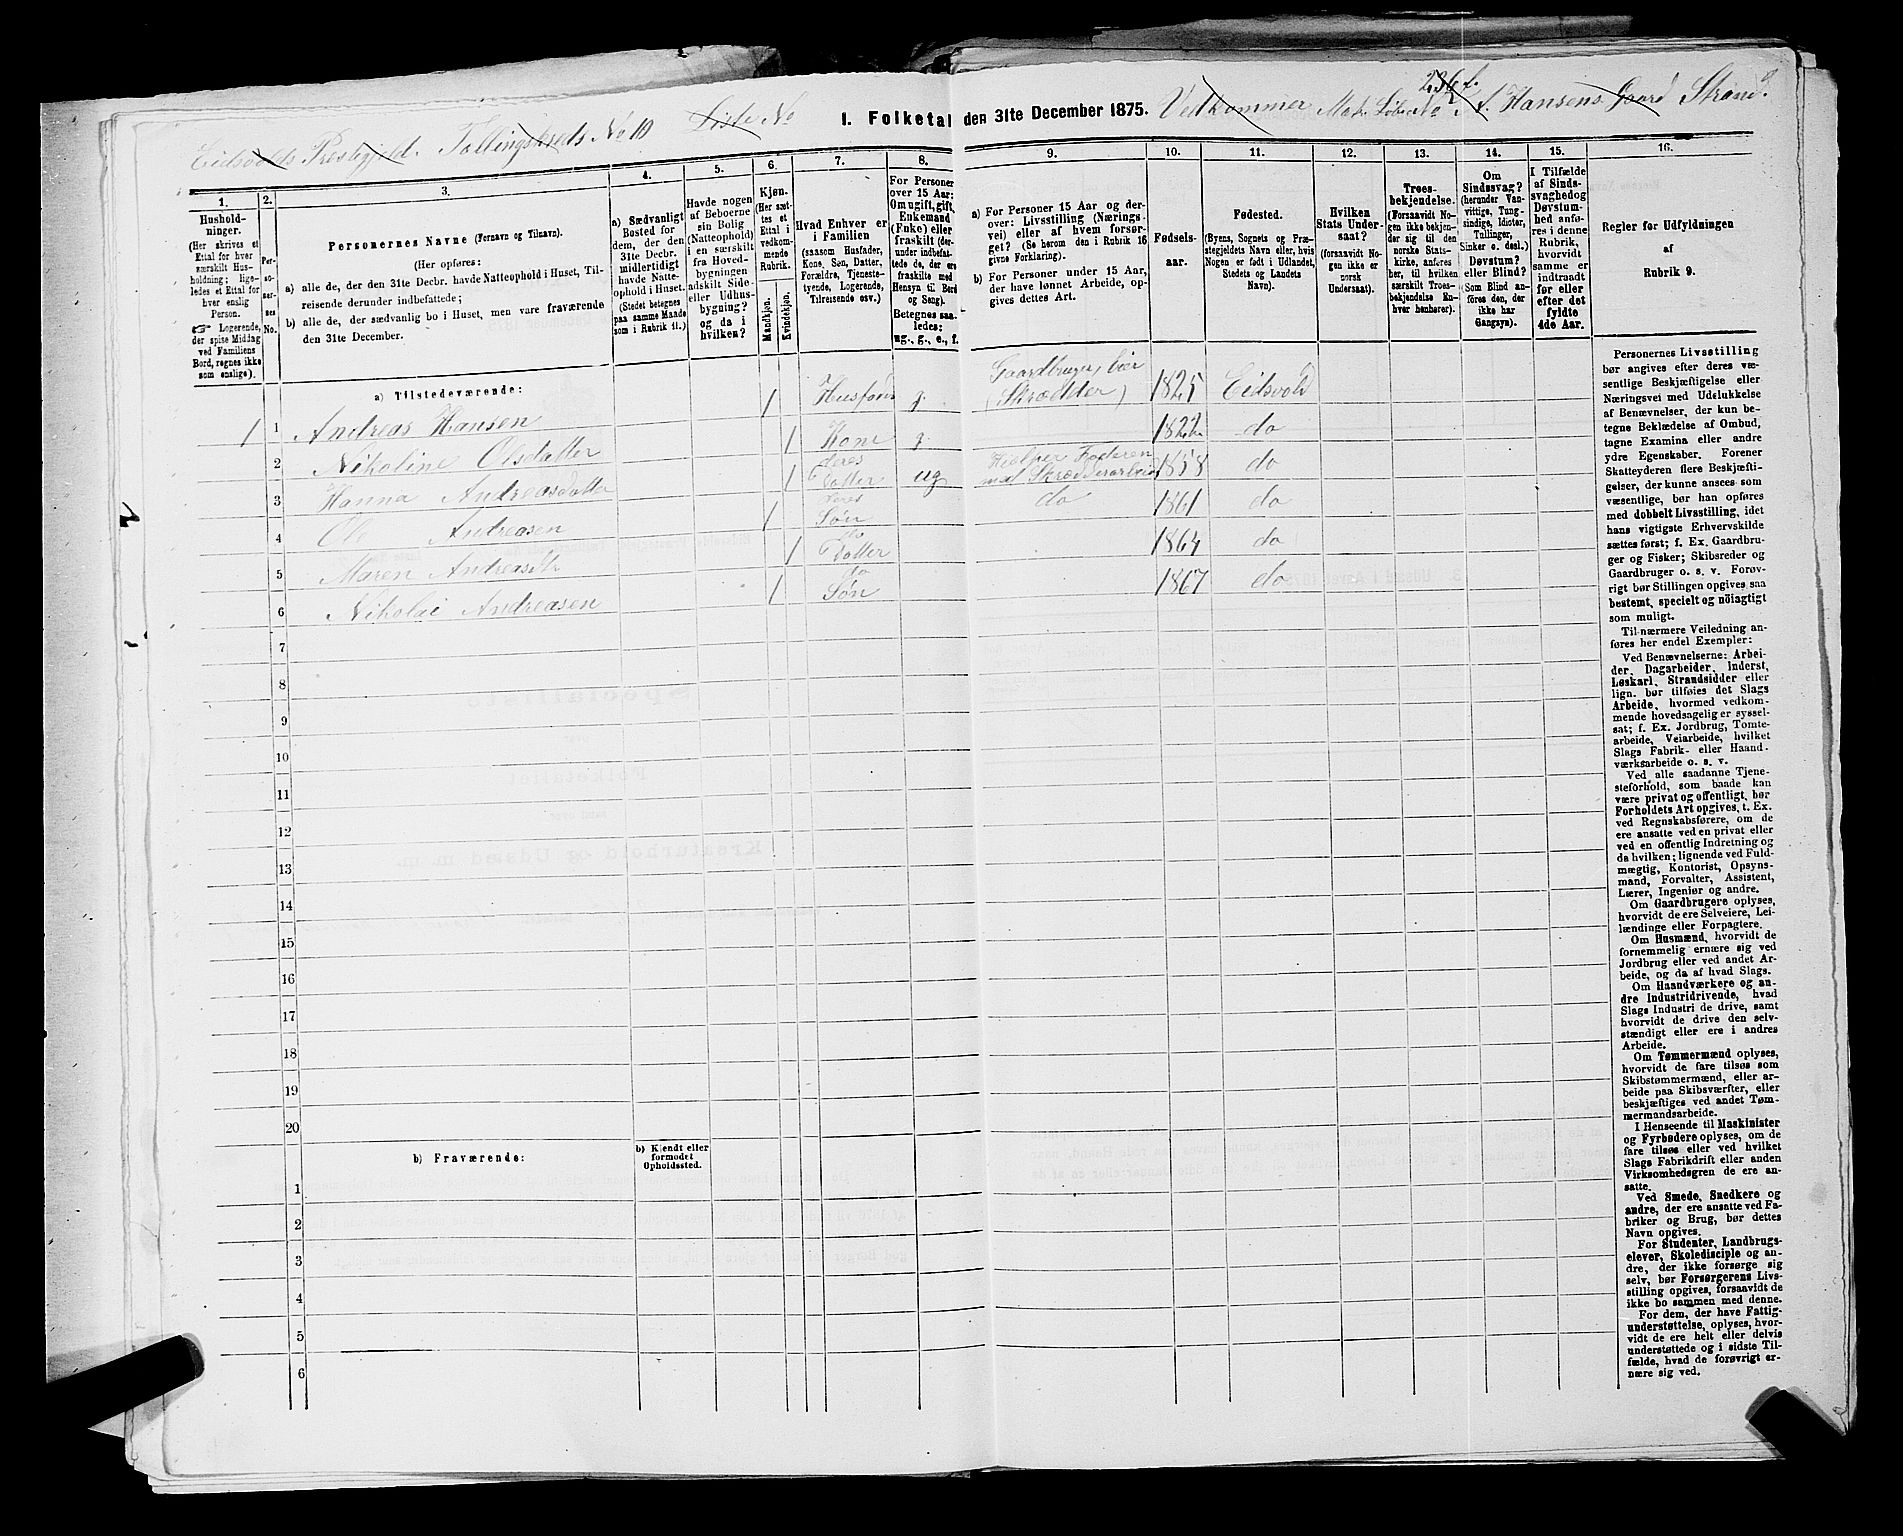 Eidsvolds Prestegjeld. Tællingskreds No 10 Liste No I. Folketal den 31te December 1875. Vedkommer Matr. Løbe No 236 f. A. Hansens Gaard Strand.
1.
2.
3.
4.
5.
6.
7.
8.
9.
10.
11.
12.
13.
14.
15.
16.
Hushold-
ninger.
(Her skrives et
Ettal for hver
særskilt Hus-
holdning; lige-
ledes et Ettal for
hver enslig
Person.
☞ Logerende,
der spise Middag
ved Familiens
Bord, regnes ikke
som enslige).
Per-
so-
ner-
nes
No.
Personernes Navne (Fornavn og Tilnavn).
(Her opføres:
a) alle de, der den 31te Decbr. havde Natteophold i Huset, Til-
reisende derunder indbefattede;
b) alle de, der sædvanlig bo i Huset, men vare fraværende
den 31te December.
a) Sædvanligt
Bosted for
dem, der den
31te Decbr.
midlertidigt
havde Natte-
ophold i Huset.
(Stedet betegnes
paa samme Maade
som i Rubrik 11.)
Havde nogen
af Beboerne
sin Bolig
(Natteophold)
i en særskilt
fra Hoved-
bygningen
adskilt Side-
eller Udhus-
bygning?
og da i
hvilken?
Kjøn.
(Her sæt-
tes et
Ettal i
vedkom-
mende
Rubrik.
Mandkjøn.
Kvindekjøn.
Hvad Enhver er
i Familien
(saasom Husfader,
Kone, Søn, Datter,
Forældre, Tjeneste-
tyende, Logerende,
Tilreisende osv.)
For Personer
over 15 Aar:
Om ugift, gift,
Enkemand
(Enke) eller
fraskilt (der-
under indbefat-
tede de, der ere
fraskilte med
Hensyn til Bord
og Seng).
Betegnes saa-
ledes:
ug., g., e., f.
a) For Personer 15 Aar og der-
over: Livsstilling (Nærings-
vei) eller af hvem forsør-
get? (Se herom den i Rubrik 16
givne Forklaring).
b) For Personer under 15 Aar,
der have lønnet Arbeide, op-
gives dettes Art.
Fødsels-
aar.
Fødested.
(Byens, Sognets og Præ-
stegjeldets Navn eller, hvis
Nogen er født i Udlandet,
Stedets og Landets
Navn).
Hvilken
Stats Under-
saat?
(forsaavidt No-
gen ikke er
norsk
Undersaat).
Troes-
bekjendelse.
(Forsaavidt No-
gen ikke bekjen-
der sig til den
norske Stats-
kirke, anføres
her, til hvilken
særskilt Troes-
bekjendelse En-
hver henhører).
Om
Sindssvag?
(herunder Van-
vittige, Tung-
sindige, Idioter,
Tullinger,
Sinker o. desl.)
Døvstum?
eller Blind?
(Som Blind an-
føres den, der
ikke har
Gangsyn).
I Tilfælde
af Sinds-
svaghed og
Døvstum-
hed anfø-
res i denne
Rubrik,
hvorvidt
samme er
indtraadt
før eller
efter det
fyldte
4de Aar.
Regler for Udfyldningen
af
Rubrik 9.
a) Tilstedeværende:
1 1 Andreas Hansen 1 Husfader g. Gaardbruger, eier (Skrædder) 1825 Eidsvold
2 Nikoline Olsdatter 1 Kone g. 1822 do
3 Hanna Andreasdatter 1 deres Datter ug Hjælper Faderen med Skrædderarbeide 1858 do
4 Ole Andreasen 1 deres Søn do 1861 do
5 Maren Andreasdtr 1 do Datter 1864 do
6 Nikolai Andreasen 1 do Søn 1867 do
7
8
9
10
11
12
13
14
15
16
17
18
19
20
b) Fraværende:
b) Kjendt eller
formodet
Opholdssted.
1
2
3
4
5
6
Personernes Livsstilling
bør angives efter deres væ-
sentlige Beskjæftigelse eller
Næringsvei med Udelukkelse
af Benævnelser, der kun be-
tegne Beklædelse af Ombud,
tagne Examina eller andre
ydre Egenskaber. Forener
Skatteyderen flere Beskjæfti-
gelser, der kunne ansees som
væsentlige, bør han opføres
med dobbelt Livsstilling, idet
hans vigtigste Erhvervskilde
sættes først; f. Ex. Gaardbru-
ger og Fisker; Skibsreder og
Gaardbruger o. s. v. Forøv-
rigt bør Stillingen opgives saa
bestemt, specielt og nöiagtigt
som muligt.
Til nærmere Veiledning an-
føres her endel Exempler:
Ved Benævnelserne: Arbei-
der, Dagarbeider, Inderst,
Løskarl, Strandsidder eller
lign. bør tilføies det Slags
Arbeide, hvormed vedkom-
mende hovedsagelig er syssel-
sat; f. Ex. Jordbrug, Tomte-
arbeide, Veiarbeide, hvilket
Slags Fabrik- eller Haand-
værksarbeide o. s. v.
Ved alle saadanne Tjene-
steforhold, som baade kan
være privat og offentligt, bør
Forholdets Art opgives, t. Ex.
ved Regnskabsførere, om de
ere ansatte ved en privat eller
ved en offentlig Indretning og
da hvilken; lignende ved Fuld-
mægtig, Kontorist, Opsyns-
mand, Forvalter, Assistent,
Lærer, Ingeniør og andre.
Om Gaardbrugere oplyses,
hvorvidt de ere Selveiere, Lei-
lændinge eller Forpagtere.
Om Husmænd, hvorvidt de
fornemmelig ernære sig ved
Jordbrug eller ved andet Ar-
beide, og da af hvad Slags.
Om Haandværkere og an-
dre Industridrivende, hvad
Slags Industri de drive, samt
hvorvidt de drive den selv-
stændigt eller ere i andres
Arbeide.
Om Tømmermænd oplyses,
hvorvidt de fare tilsøs som
Skibstømmermænd, eller ar-
beide paa Skibsværfter, eller
beskjæftiges ved andet Tøm-
mermandsarbeide.
I Henseende til Maskinister
og Fyrbødere oplyses, om de
fare tilsøs eller ved hvilket
Slags Fabrikdrift eller anden
Virksomhedsgren de ere an-
satte.
Ved Smede, Snedkere og
andre, der ere ansatte ved Fa-
briker og Brug, bør dettes
Navn opgives.
For Studenter, Landbrugs-
elever, Skoledisciple og an-
dre, der ikke forsørge sig
selv, bør Forsørgerens Livs-
stilling opgives, forsaavidt de
ikke bo sammen med denne.
For dem, der have Fattig-
understøttelse, oplyses, hvor-
vidt de ere helt eller delvis
understøttede og i sidste Til-
fælde, hvad de forøvrigt er-
nære sig ved.